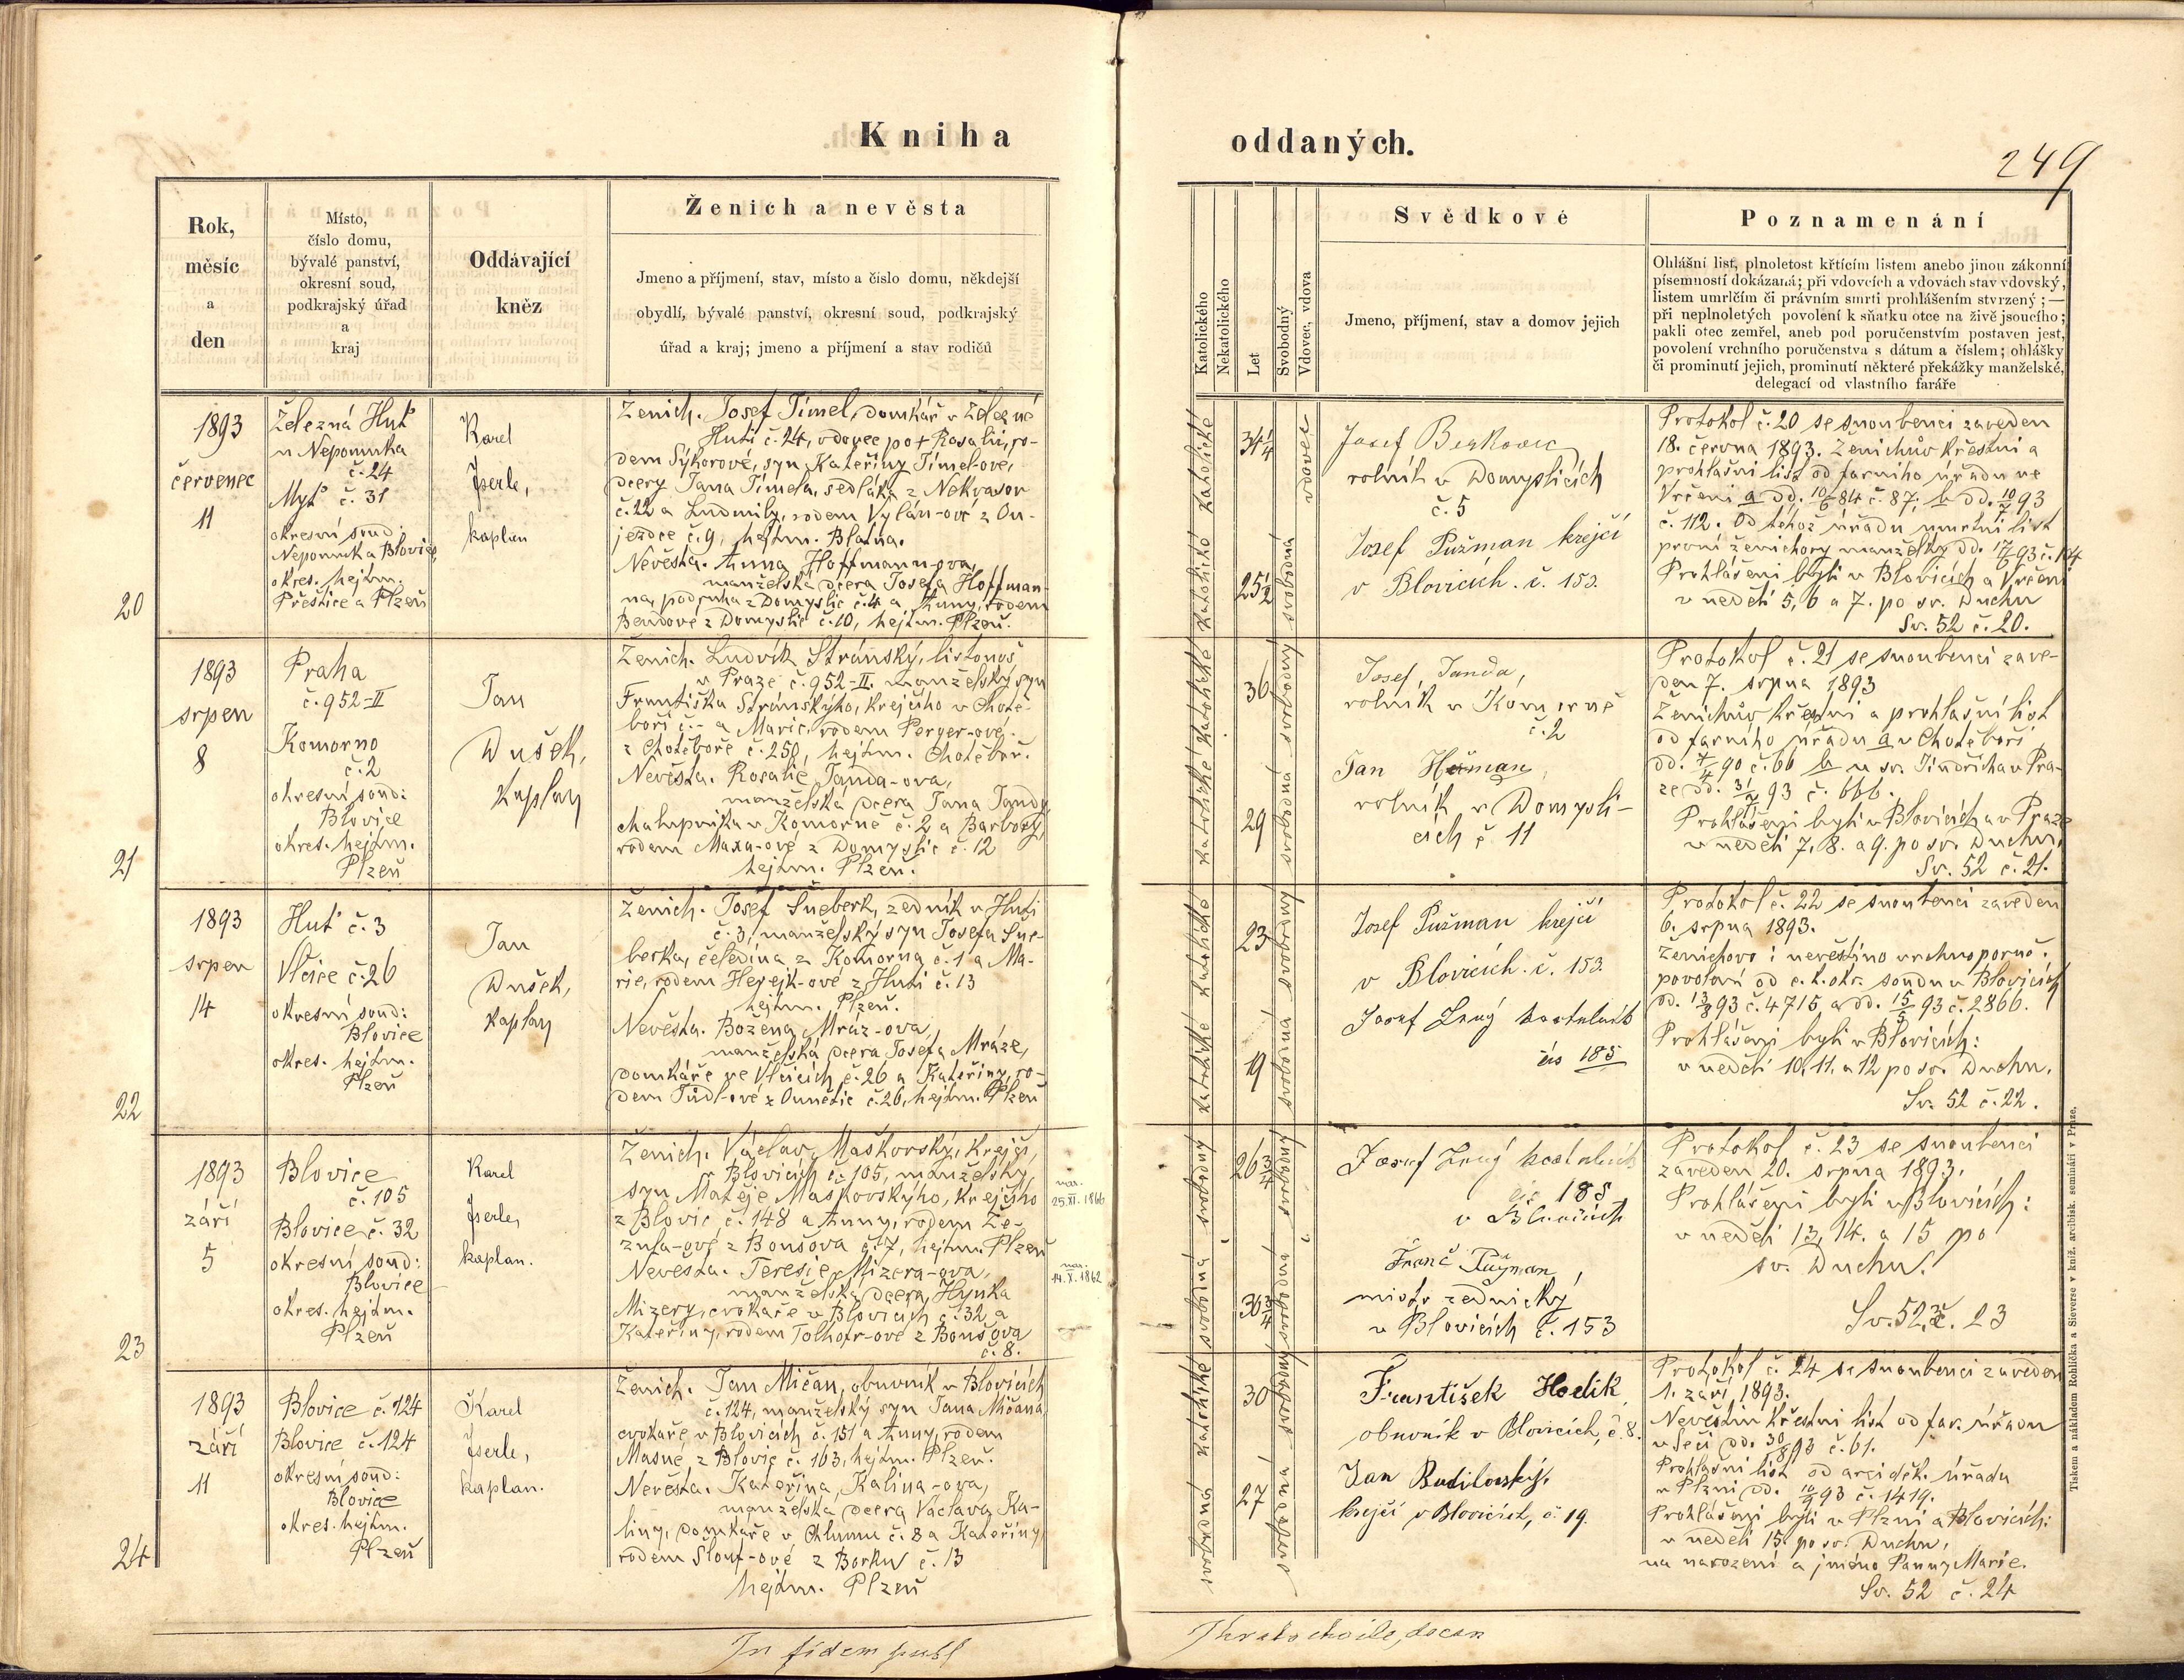 Kniha
oddaných.
249
Rok,
měsíc
a
den
Místo,
číslo domu,
bývalé panství,
okresní soud,
podkrajský úřad
a
kraj
Oddávající
kněz
Ženich a nevěsta
Jmeno a příjmení, stav, místo a číslo domu, někdejší
obydlí, bývalé panství, okresní soud, podkrajský
úřad a kraj; jmeno a příjmení a stav rodičů
Katolického
Nekatolického
Let
Svobodný
Vdovec, vdova
Svědkové
Jmeno, příjmení, stav a domov jejich
Poznamenání
Ohlášní list, plnoletost křtícím listem anebo jinou zákonní
písemností dokázaná; při vdovcích a vdovách stav vdovský,
listem umrlčím či právním smrti prohlášením stvrzený; —
při neplnoletých povolení k sňatku otce na živě jsoucího;
pakli otec zemřel, aneb pod poručenstvím postaven jest,
povolení vrchního poručenstva s dátum a číslem; ohlášky
či prominutí jejich, prominutí některé překážky manželské,
delegací od vlastního faráře
20
1893
červenec
11
Železná Huť
u Nepomuka
č. 24
Myť č. 31
okresní soud:
Nepomuk a Blovice,
okres. hejtm.
Přeštice a Plzeň
Karel
Jserle,
kaplan
Ženich. Josef Tímel, domkář v Železné
Huti č. 24, vdovec po + Rosalii, ro-
dem Sýkorové, syn Kateřiny Tímel-ové,
dcery Jana Tímela, sedláka z Nekvasov
č. 22 a Ludmily, rodem Vylán-ové z Ou-
jezdce č. 9, hejtm. Blatna.
Nevěsta. Anna Hoffmann-ova,
manželská dcera Josefa Hoffman-
na, podruha z Domyslic č. 4 a Anny, rodem
Bendové z Domyslic č. 10, hejtm. Plzeň.
34 1/4
25 1/2
vdovec
Josef Berkovec
rolník v Domyslicích
č. 5
Josef Pužman krejčí
v Blovicích. č. 153.
Protokol č. 20 se snoubenci zaveden
18. června 1893. Ženichův křestní a
prohlašní list od farního úřadu ve
Vrčeni a dd. 10/6 84 č. 87; b dd. 10/7 93
č. 112. Od téhož úřadu umrtní list
první ženichovy manželky dd.
Prohlášeni byli v Blovicích a Vrčeni
v neděli 5, 6 a 7. po sv. Duchu
Sv. 52 č. 20.
21
1893
srpen
8
Praha
č. 952-II
Komorno
č. 2
okresní soud:
Blovice
okres. hejtm.
Plzeň
Jan
Dušek,
kaplan
Ženich. Ludvík Stránský, listonoš
v Praze č. 952-II. manželský syn
Františka Stránského, krejčího v Chotě-
boři č. - a Marie, rodem Perger-ové
z Chotěboře č. 250, hejtm. Chotěboř.
Nevěsta. Rosalie Janda-ova,
manželská dcera Jana Jandy
chalupníka v Komorně č. 2 a Barbory,
rodem Maxa-ové z Domyslic č. 12
hejtm. Plzeň.
36
29
Josef, Janda,
rolník v Komorně
č. 2
Jan Human,
rolník v Domysli-
cích č 11
Protokol č. 21 se snoubenci zave-
den 7. srpna 1893
Ženichův křestní a prohlašní list
od farního úřadu a v Chotěboři
dd. 7/4 90 č. 66 b u sv. Jindřicha v Pra-
ze dd. 31/7 93 č. 666.
Prohlášeni byli v Blovicích a v Praze
v neděli 7, 8. a 9. po sv. Duchu,
Sv. 52 č. 21.
22
1893
srpen
14
Huť č. 3
Vlčice č. 26
okresní soud:
Blovice
okres. hejtm.
Plzeň
Jan
Dušek,
kaplan
Ženich. Josef Sneberk, zedník v Huti
č. 3, manželský syn Josefa Sne-
berka, čeledína z Komorna č. 1 a Ma-
rie, rodem Herejk-ové z Huti č. 13
hejtm. Plzeň.
Nevěsta. Božena Mráz-ova,
manželská dcera Josefa Mráze,
domkáře ve Vlčicích č. 26 a Kateřiny, ro-
dem Tůdl-ové z Ounětic č. 26, hejtm. Plzeň
23
19
Josef Pužman krejčí
v Blovicích. č. 153.
Josef Lený kostelník
čís 185
Protokol č. 22 se snoubenci zaveden
6. srpna 1893.
Ženichovo i nevěstino vrchnoporuč.
povolení od c. k. okr. soudu v Blovicích
dd. 13/3 93 č. 4715 a dd. 15/5 93 č. 2860.
Prohlášeni byli v Blovicích:
v neděli 10, 11. a 12 po sv. Duchu.
Sv. 52 č. 22.
23
1893
září
5
Blovice
č. 105
Blovice č. 32
okresní soud:
Blovice
okres. hejtm.
Plzeň
Karel
Jserle,
kaplan.
Ženich. Václav Maškovský, krejčí,
v Blovicích č. 105, manželský
syn Matěje Maškovského, krejčího
z Blovic č. 148 a Anny, rodem Že-
zula-ové z Boušova č. 7, hejtm. Plzeň
Nevěsta. Teresie Mizera-ova,
manželská dcera Hynka
Mizery, cvokaře v Blovicích č. 32 a
Kateřiny, rodem Tolhofr-ové z Boušova
č. 8.
nar.
25. XI. 1866
nar.
14. X. 1862
26 3/4
30 3/4
Josef Lený kostelník
čís 185
v Blovicích
Franč Pužman,
mistr zednický
v Blovicích č. 153
Protokol č. 23 se snoubenci
zaveden 20. srpna 1893.
Prohlášeni byli v Blovicích:
v neděli 13, 14. a 15 po
sv. Duchu.
Sv. 52. č. 23
24
1893
září
11
Blovice č. 124
Blovice č. 124
okresní soud:
Blovice
okres. hejtm.
Plzeň
Karel
Jserle,
kaplan.
Ženich. Jan Mičan, obuvník v Blovicích
č. 124, manželský syn Jana Mičana,
cvokaře v Blovicích č. 151 a Anny, rodem
Masné z Blovic č. 163, hejtm. Plzeň.
Nevěsta. Kateřina Kalina-ova,
manželská dcera Václava Ka-
liny, domkáře v Chlumu č. 8 a Kateřiny
rodem Slouf-ové z Borku č. 13
hejtm. Plzeň
30
27
František Hodík,
obuvník v Blovicích, č. 8.
Jan Budilovský,
krejčí v Blovicích, č. 19.
Protokol č. 24 se snoubenci zaveden
1. září 1893.
Nevěstin křestní list od far. úřadu
v Seči dd. 30/8 93 č. 61.
Prohlašní list od arciděk. úřadu
v Plzni dd. 10/9 93 č. 1419.
Prohlášeni byli v Plzni a Blovicích:
v neděli 15. po sv. Duchu,
na narození a jméno Panny Marie.
Sv. 52 č. 24
In fidem publ
Tiskem a nákladem Rohlíčka a Sieverse v kníž. arcibisk. semináři v Praze.